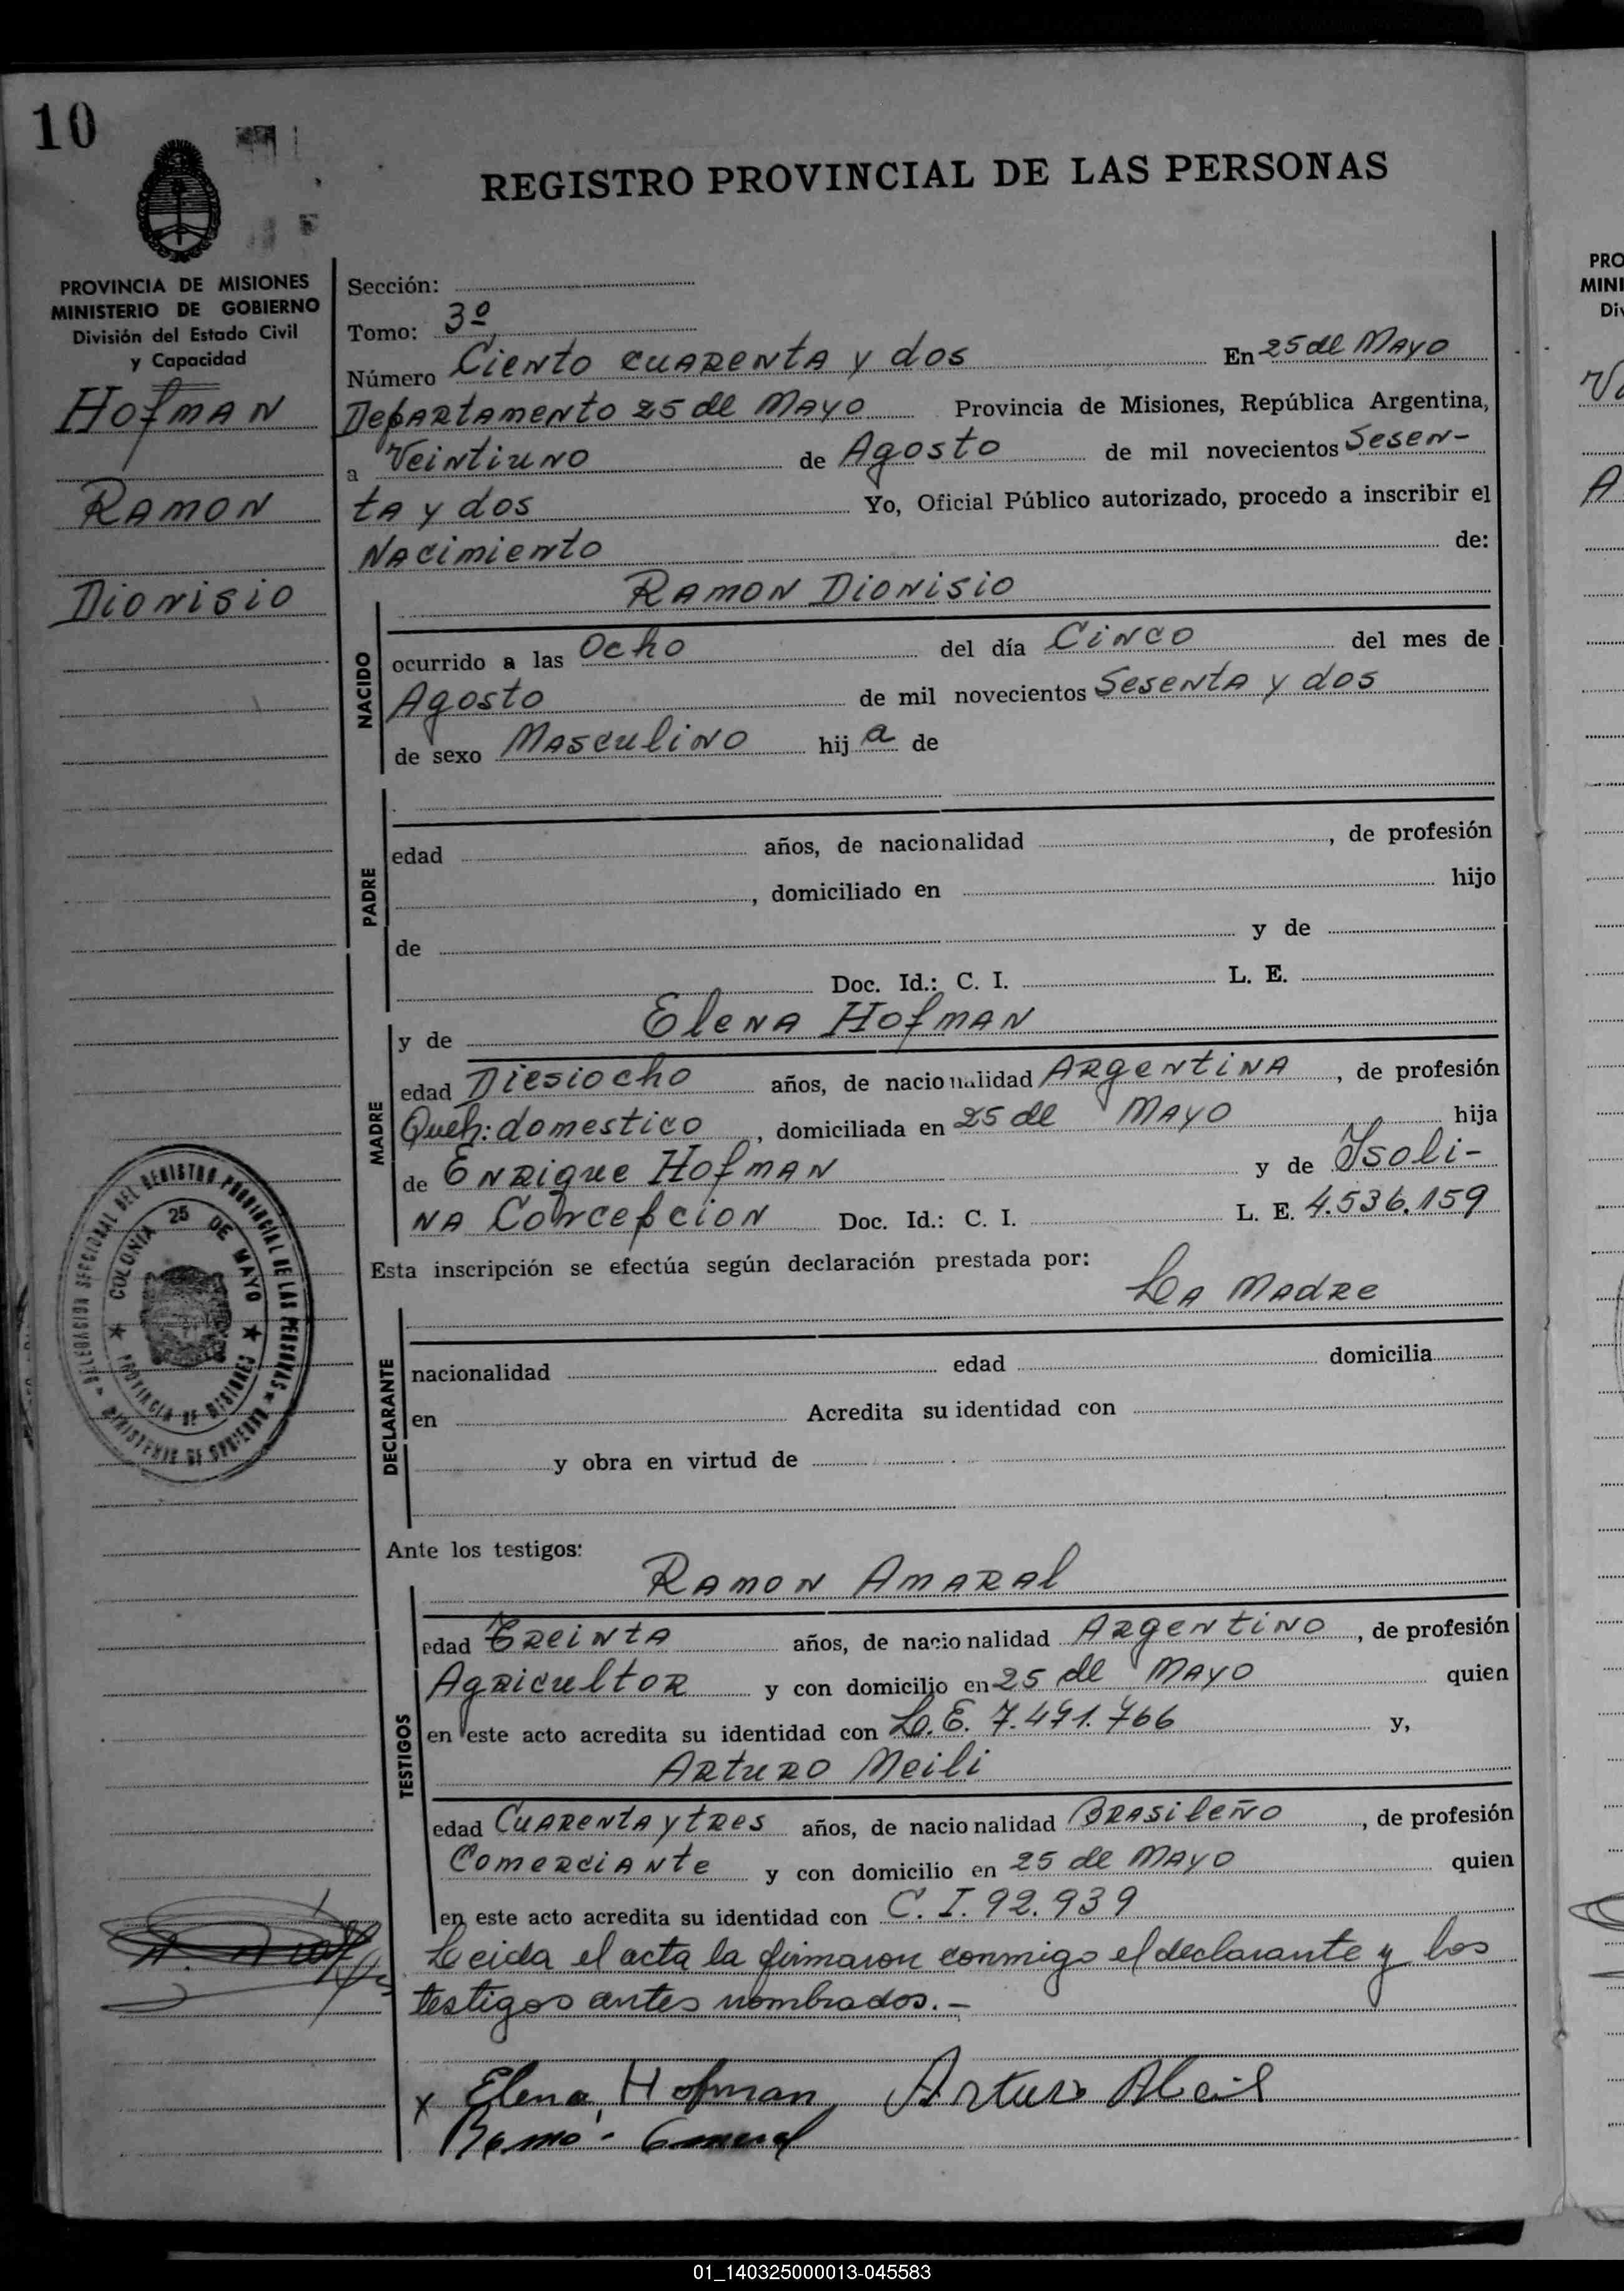 10
REGISTRO PROVINCIAL DE LAS PERSONAS
PROVINCIA DE MISIONES
MINISTERIO DE GOBIERNO
División del Estado Civil
y Capacidad
Hofman
Ramon
Dionisio
Sección:
Tomo: 3º
Número Ciento cuarenta y dos En 25 de Mayo
Departamento 25 de Mayo Provincia de Misiones, República Argentina,
a Veintiuno de Agosto de mil novecientos Sesen-
ta y dos Yo, Oficial Público autorizado, procedo a inscribir el
Nacimiento de:
Ramon Dionisio
NACIDO
ocurrido a las Ocho del día Cinco del mes de
Agosto de mil novecientos Sesenta y dos
de sexo Masculino hij a de
PADRE
edad años, de nacionalidad , de profesión
, domiciliado en hijo
de y de
Doc. Id.: C. I. L. E.
y de Elena Hofman
MADRE
edad Diesiocho años, de nacionalidad Argentina , de profesión
Queh: domestico , domiciliada en 25 de Mayo hija
de Enrique Hofman y de Isoli-
na Concepcion Doc. Id.: C. I. L. E. 4.536.159
Esta inscripción se efectúa según declaración prestada por:
La Madre
DECLARANTE
nacionalidad edad domicilia
en Acredita su identidad con
y obra en virtud de
DELEGACION SECCIONAL DEL REGISTRO PROVINCIAL DE LAS PERSONAS
MINISTERIO DE GOBIERNO
COLONIA 25 DE MAYO
PROVINCIA DE MISIONES
Ante los testigos:
Ramon Amaral
TESTIGOS
edad Treinta años, de nacionalidad Argentino , de profesión
Agricultor y con domicilio en 25 de Mayo quien
en este acto acredita su identidad con L.E. 7.491.766 y,
Arturo Meili
edad Cuarenta y tres años, de nacionalidad Brasileño , de profesión
Comerciante y con domicilio en 25 de Mayo quien
en este acto acredita su identidad con C. I. 92.939
Leida el acta la firmaron conmigo el declarante y los
testigos antes nombrados.-
x Elena Hofman Arturo
PRO
MINI
Div
01_140325000013-045583